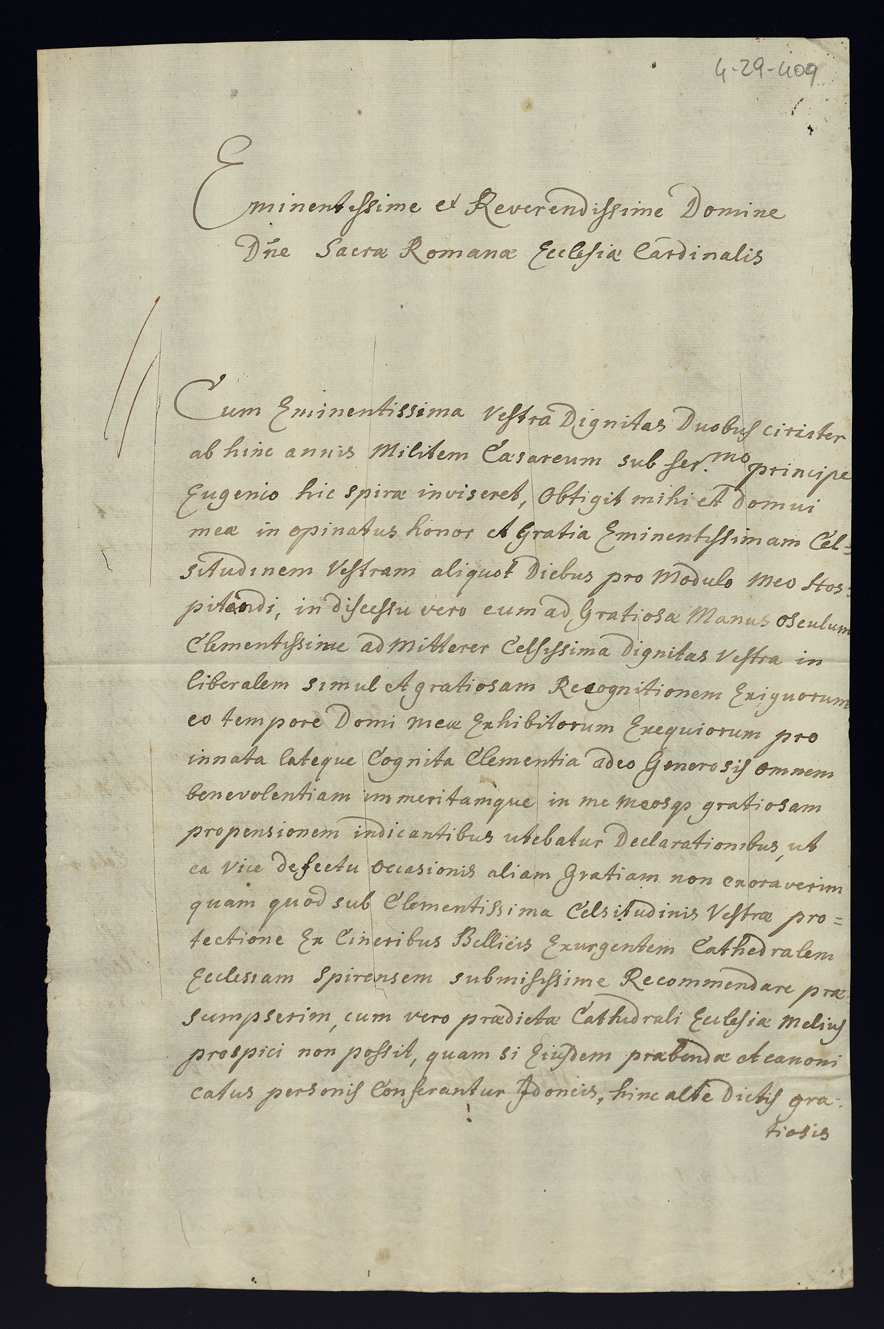 4-29-409
Eminentissime et Reverendissime Domine
Dñe Sacræ Romanæ Ecclesiæ Cardinalis
Cum Eminentissima Vestra Dignitas Duobus circiter
ab hinc annis Militem Cæsareum sub Ser.mo principe
Eugenio hic spiræ inviseret, Obtigit mihi et Domui
meæ in opinatus honor et Gratia Eminentissimam Cel=
situdinem Vestram aliquot Diebus pro Modulo Meo Hos=
pitandi, in discessu vero cum ad Gratiosa Manus osculum
Clementissime ad Mitterer Celsissima Dignitas Vestra in
liberalem simul et gratiosam Recognitionem Exiguorum
eo tempore Domi meæ Exhibitorum Exequiorum pro
innata lateque Cognita Clementia adeo Generosis omnem
benevolentiam immeritamque in me Meosqз gratiosam
propensionem indicantibus utebatur Declarationibus, ut
ea vice defectu occasionis aliam Gratiam non exoraverim
quam quod sub Clementissima Celsitudinis Vestræ pro=
tectione Ex Cineribus Bellicis Exurgentem Cathedralem
Ecclesiam Spirensem submisissime Recommendare præ
sumpserim, cum vero prædictæ Cathedrali Ecclesiæ Melius
prospici non possit, quam si Eiusdem præbendæ et canoni
catus personis Conferantur Idoneis, hinc alte Dictis gra=
tiosis